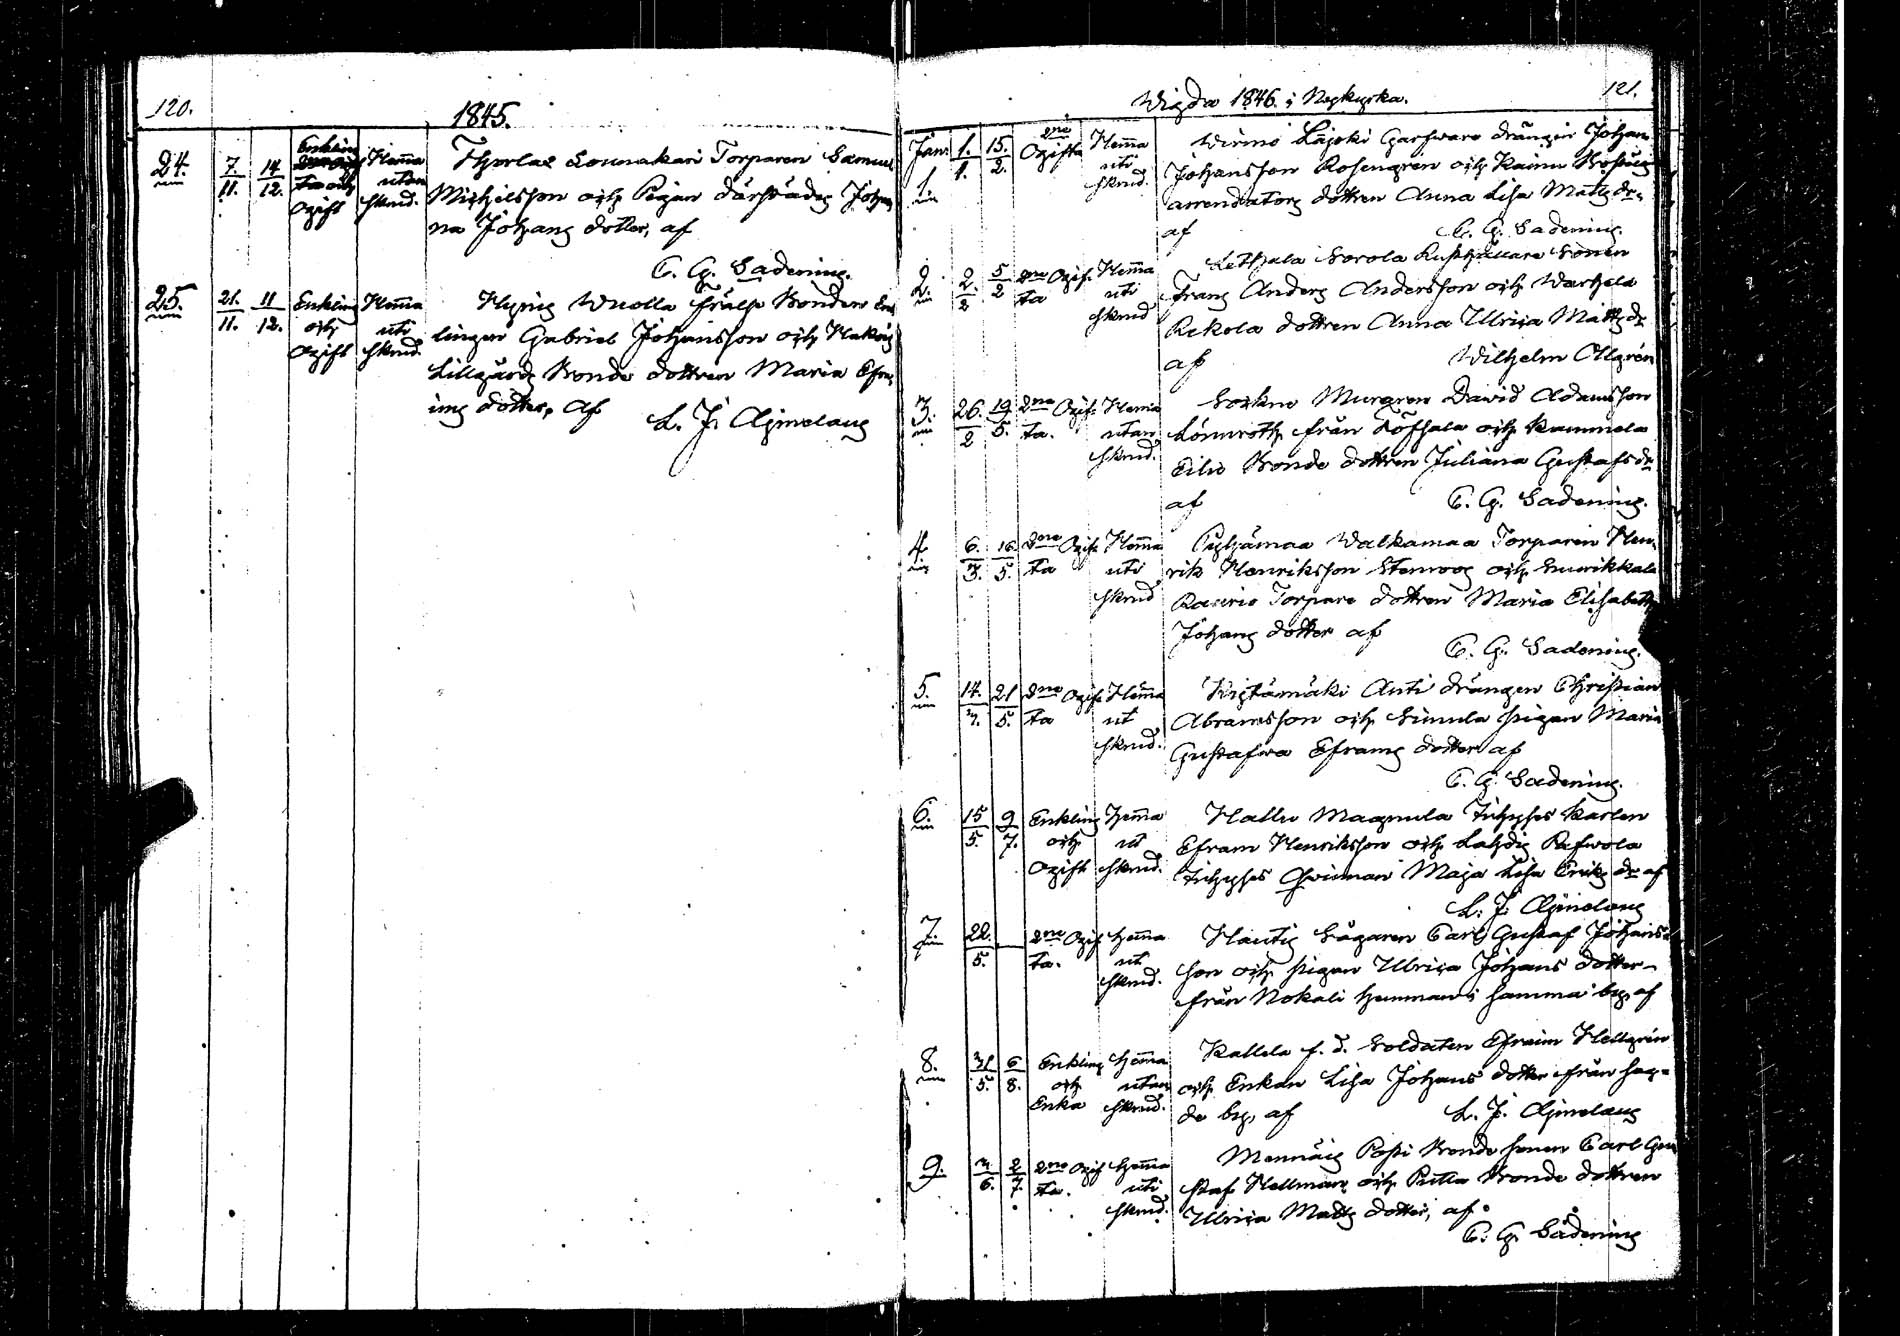 120.
1845.
24.
7/11.
14/12.
Enkling
och
Ogift
Hemma
utan
skrud.
Samuel
Michelsson och Pigan därstädes Johan
na Johans dotter, af
C. G. Sadenius.
25.
21./11.
11/12.
Enkling
och
Ogift
Hemma
uti
skrud.
Frälse Bonden Enk
lingen Gabriel Johansson och
Lillgårds Bonde dottren Maria Efra
ims dotter, af
L. J. Ajmelaeus
Wigda 1846. i Nykyrka.
121.
Jan:
1.
1./1.
15./2.
Ogifta
Hemma
uti
skrud.
drängen Johan
Johansson Rosengren och
arrendators dottren Anna Lisa Matts dr.
af
C. G. Sadenius.
2.
2./2
5/2
Ogif
ta
Hemma
uti
skrud
Lethala Sorola Rusthållare Sonen
Frans Anders Andersson och Warhela
Rekola dottren Anna Ulrica Matts dr
af
Wilhelm Allgrén
3.
26./2
19/5.
Ogif
ta.
Hemma
utan
skrud.
Sockne Muraren David Adamsson
Lönnroth från Töfsala och Kammela
Eilo Bonde dottren Juliana Gustafs dr
af
C. G. Sadenius.
4.
6./3.
16./5.
Ogif
ta
Hemma
uti
skrud
Pyhämaa Walkamaa Torparen Hen
rik Henriksson Stenroos och
Raurio Torpare dottren Maria Elisabeth
Johans dotter af
C. G. Sadenius.
5.
14.
21/5.
Ogif
ta
Hemma
ut
skrud.
Anti drängen Christian
Abramsson och Simula pigan Maria
Gustafwa Eframs dotter af
C. G. Sadenius.
6.
15/5.
9/7.
Enkling
och
Ogift
Hemma
ut
skrud.
Hallu Magnula Inhyses Karlen
Efram Henriksson och Lahdis
Inhyses Qwinnan Maja Lisa Eriks dr af
L. J. Ajmelaeus
7.
22./5.
—
Ogif
ta.
Hemma
ut
skrud.
Carl Gustaf Johans
son och pigan Ulrica Johans dotter
från Nokali hemman i samma by, af
8.
31/5.
6/8.
Enkling
och
Enka
Hemma
utan
skrud.
Kallela f. d. Soldaten Efraim Hellgrén
och Enkan Lisa Johans dotter från sag=
de by, af
L. J. Ajmelaeus
9.
2/7.
Ogif
ta.
Hemma
uti
skrud.
Mennäis Passi Bonde sonen Carl Gu
staf Hellman och Putla Bonde dottren
Ulrica Matts dotter, af
C. G. Sadenius